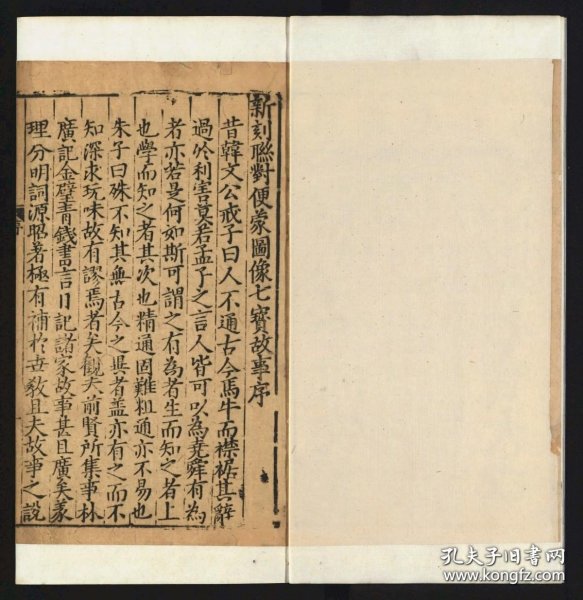 新刻聯對便蒙圖像七寶故事序
昔韓文公戒子曰人不通古今馬牛而襟裾其辭
過於利害莫若孟子之言人皆可以為堯舜有為
者亦若是何如斯可謂之有為者生而知之者上
也學而知之者其次也精通固難粗通亦不易也
朱子曰殊不知其無古今之異者盖亦有之而不
知深求玩味故有謬焉者矣觀夫前賢所集事林
廣記金璧青錢書言日記諸家故事甚且廣矣蒙
理分明詞源昭著極有補於世教且夫故事之說
孔夫子旧书网
www.kongfz.com